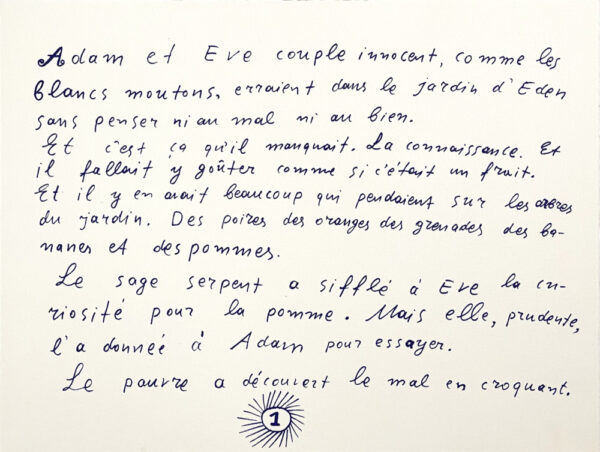 Adam et Eve couple innocent, comme les
blancs moutons, erraient dans le jardin d'Eden
sans penser ni au mal ni au bien.
Et c'est ça qu'il manquait. La connaissance. Et
il fallait y goûter comme si c'était un fruit.
Et il y en avait beaucoup qui pendaient sur les arbres
du jardin. Des poires des oranges des grenades des ba-
nanes et des pommes.
Le sage serpent a sifflé à Eve la cu-
riosité pour la pomme. Mais elle, prudente,
l'a donnée à Adam pour essayer.
Le pauvre a découvert le mal en croquant.
1